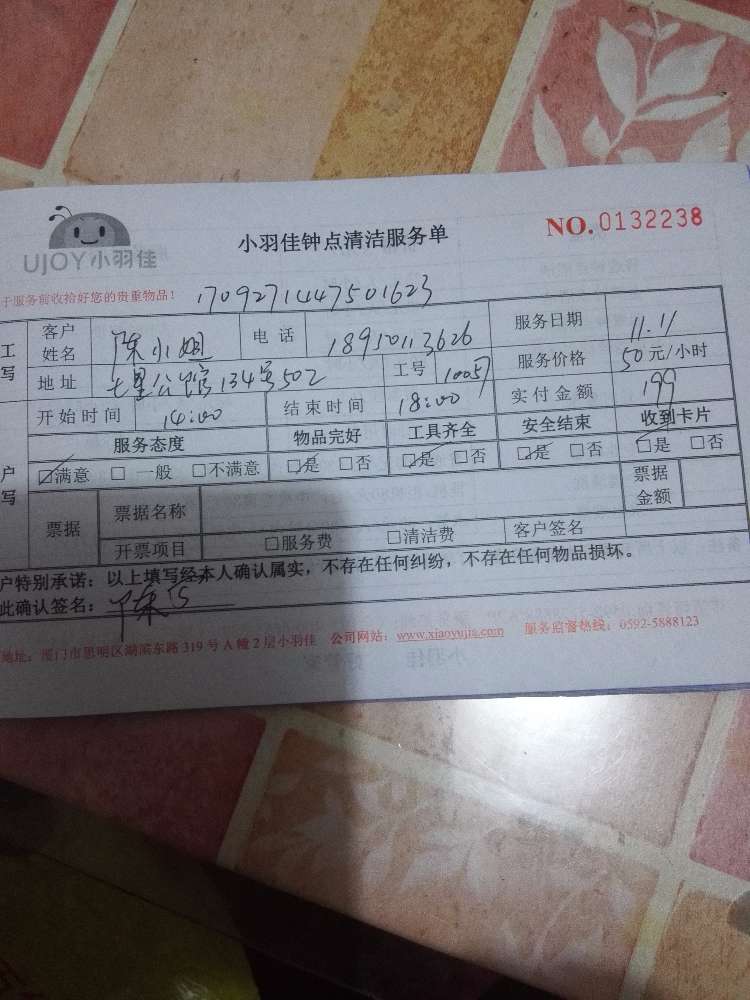 UJOY小羽佳
小羽佳钟点清洁服务单
NO.0132238
于服务前收拾好您的贵重物品！
1709271447501623
工写
客户姓名 陈小姐 电话 18910113626 服务日期 11.11
地址 七里公馆134号502 工号 1005 服务价格 50元/小时
开始时间 14:00 结束时间 18:00 实付金额 199
户写
服务态度 物品完好 工具齐全 安全结束 收到卡片
☑满意 □一般 □不满意 ☑是 □否 ☑是 □否 ☑是 □否 ☑是 □否
票据 票据名称 票据金额
开票项目 □服务费 □清洁费 客户签名
户特别承诺：以上填写经本人确认属实，不存在任何纠纷，不存在任何物品损坏。
此确认签名：陈
地址：厦门市思明区湖滨东路319号A幢2层小羽佳 公司网站：www.xiaoyujia.com 服务监督热线：0592-5888123